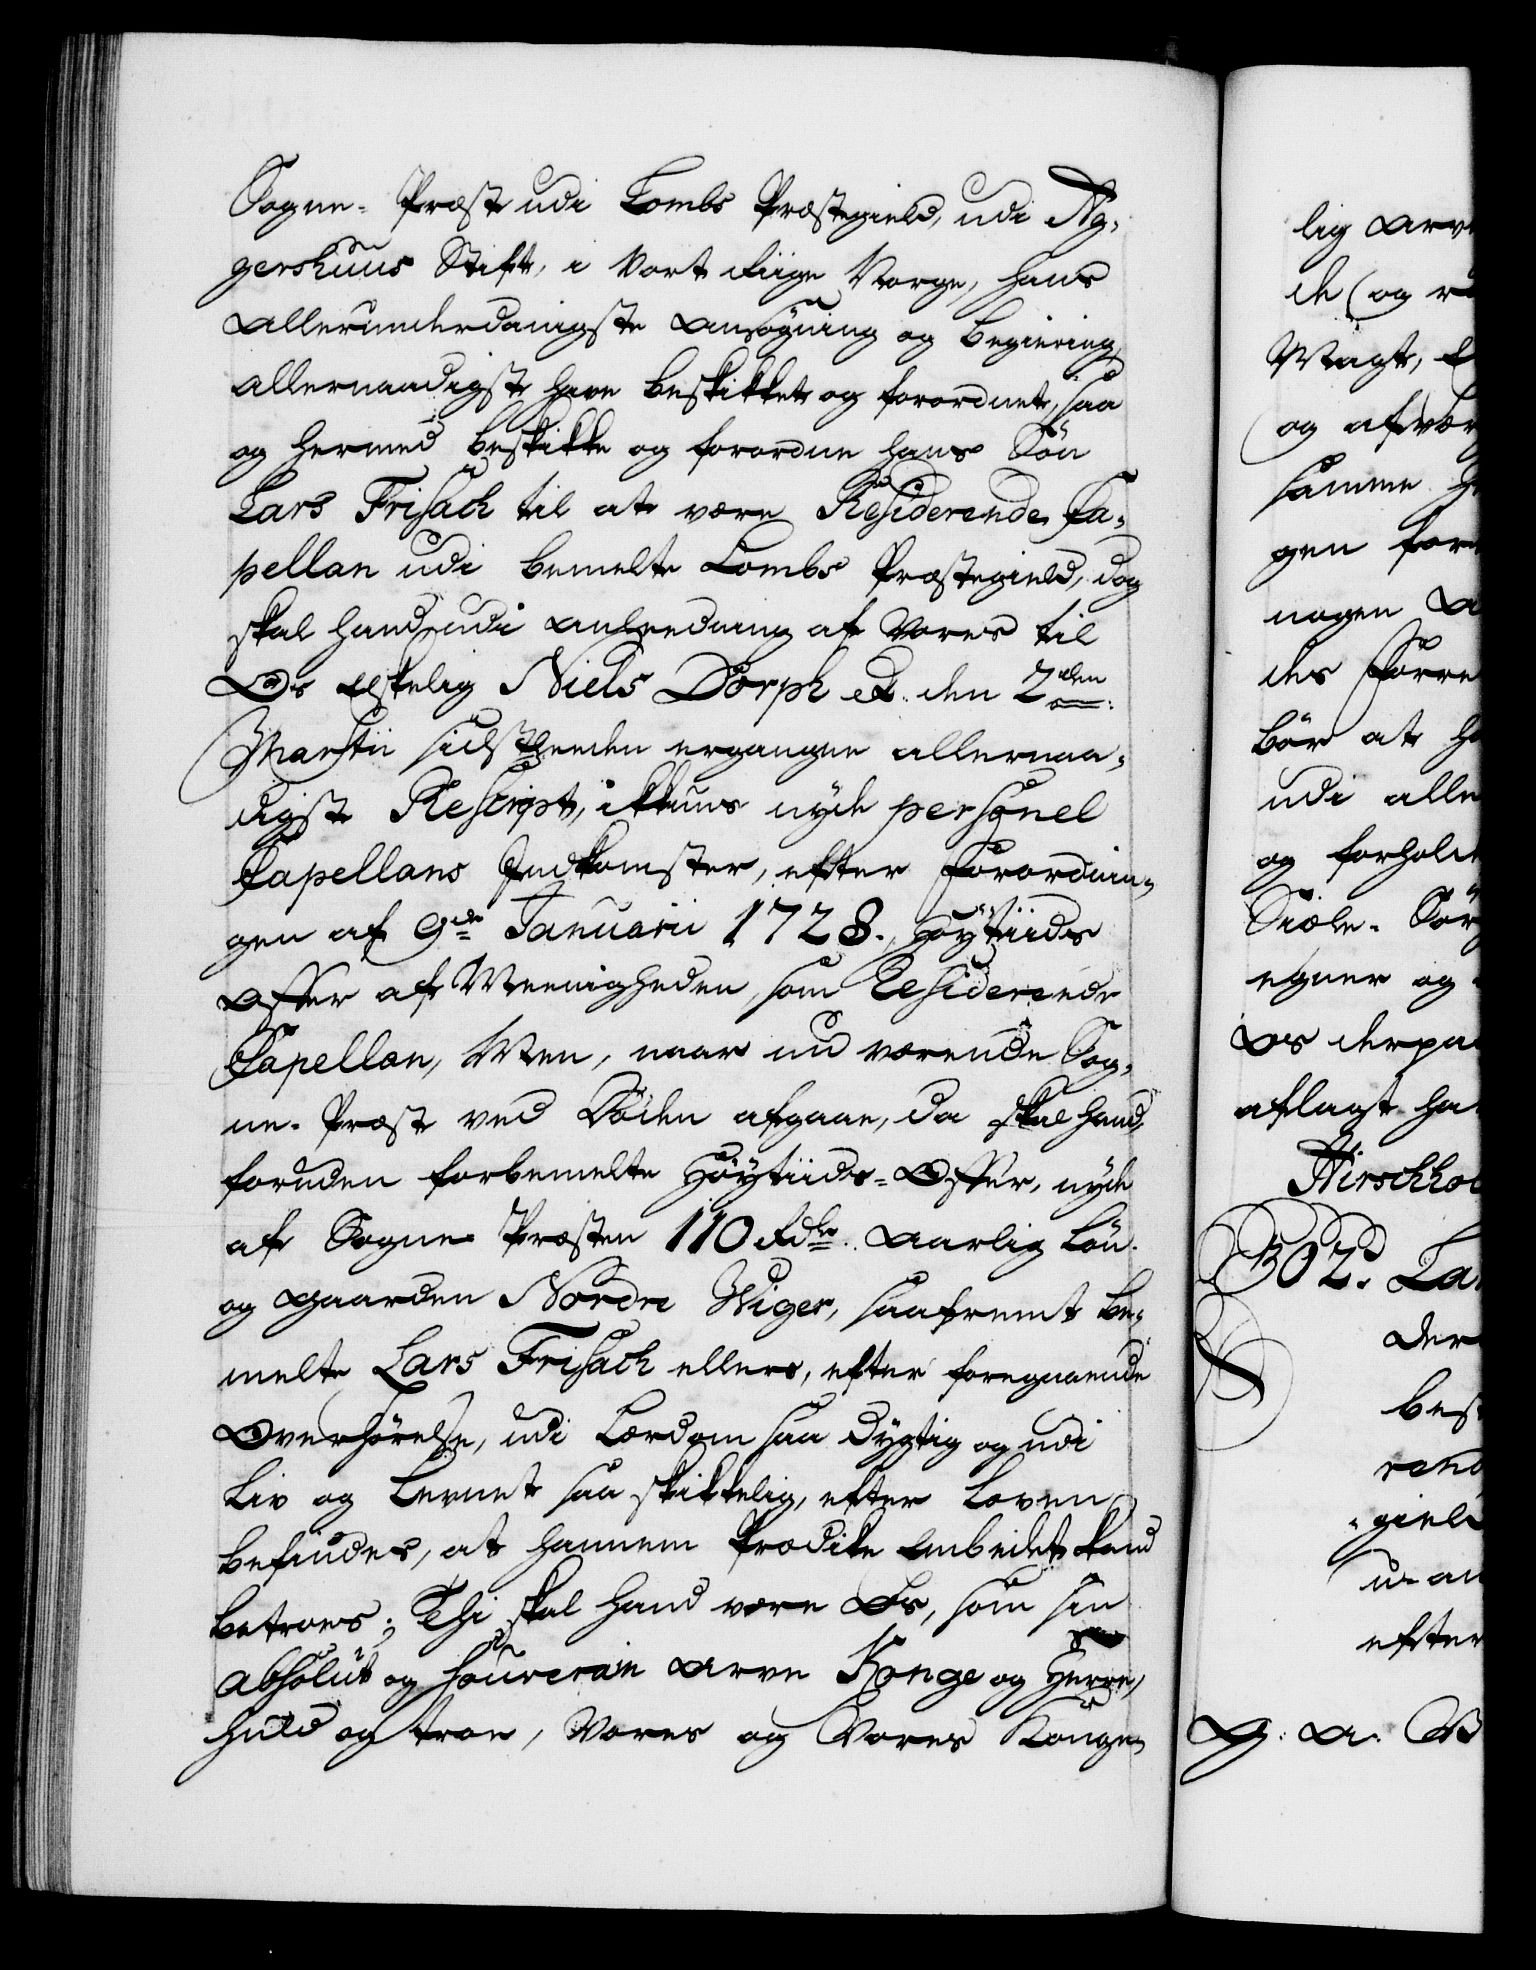 Sogne-Præst udi Lombs Præstegield, udi Ag-
gershuus Stift, i Vort Riige Norge, hans
allerunderdanigste ansøgning og begiering
allernaadigst have beskikket og forordnet, saa
og hermed beskikke og forordne hans Sön
Lars Frisach til at være Residerende Ca-
pellan udi bemelte Lombs Præstegield, dog
skal hand, udi anleedning af Vores til
Os Elskelig Niels Dorph den 2den
Martii sidstleeden ergangne allernaa-
digste Rescript, ikkuns nyde personel
Capellans Indkomster, efter Forordnin-
gen af 9de Januarii 1728., Høytiids
Offer af Meenigheden, som Residerende
Capellan, Men, naar nu værende Sog-
ne-Præst ved Døden afgaae, da skal hand,
foruden forbemelte Høytiids-Offer, nyde
af Sogne Præsten 110 Rdlr. aarlig Løn.
og gaarden Nordre Wiger, saafremt be-
melte Lars Frisach ellers, efter foregaaende
Overhørelse, udi Lærdom saa dygtig og udi
Liv og Levnet saa skikkelig, efter Loven
befindes, at hannem Prædike Embedet kand
betroes; Thi skal hand være Os, som sin
absolut og souverain Arve Konge og Herre,
huld og troe, Vores og Vores Konge-
lig arv
de (og
Magt,
og afvær
samme
gen for
nogen
des Forre
bør at
udi alle
og forhold
Siæle-Sørg
egner og
Os derpaa
aflagt ha
Hirschhol
302. La
Der
bes
rend
gield
efter